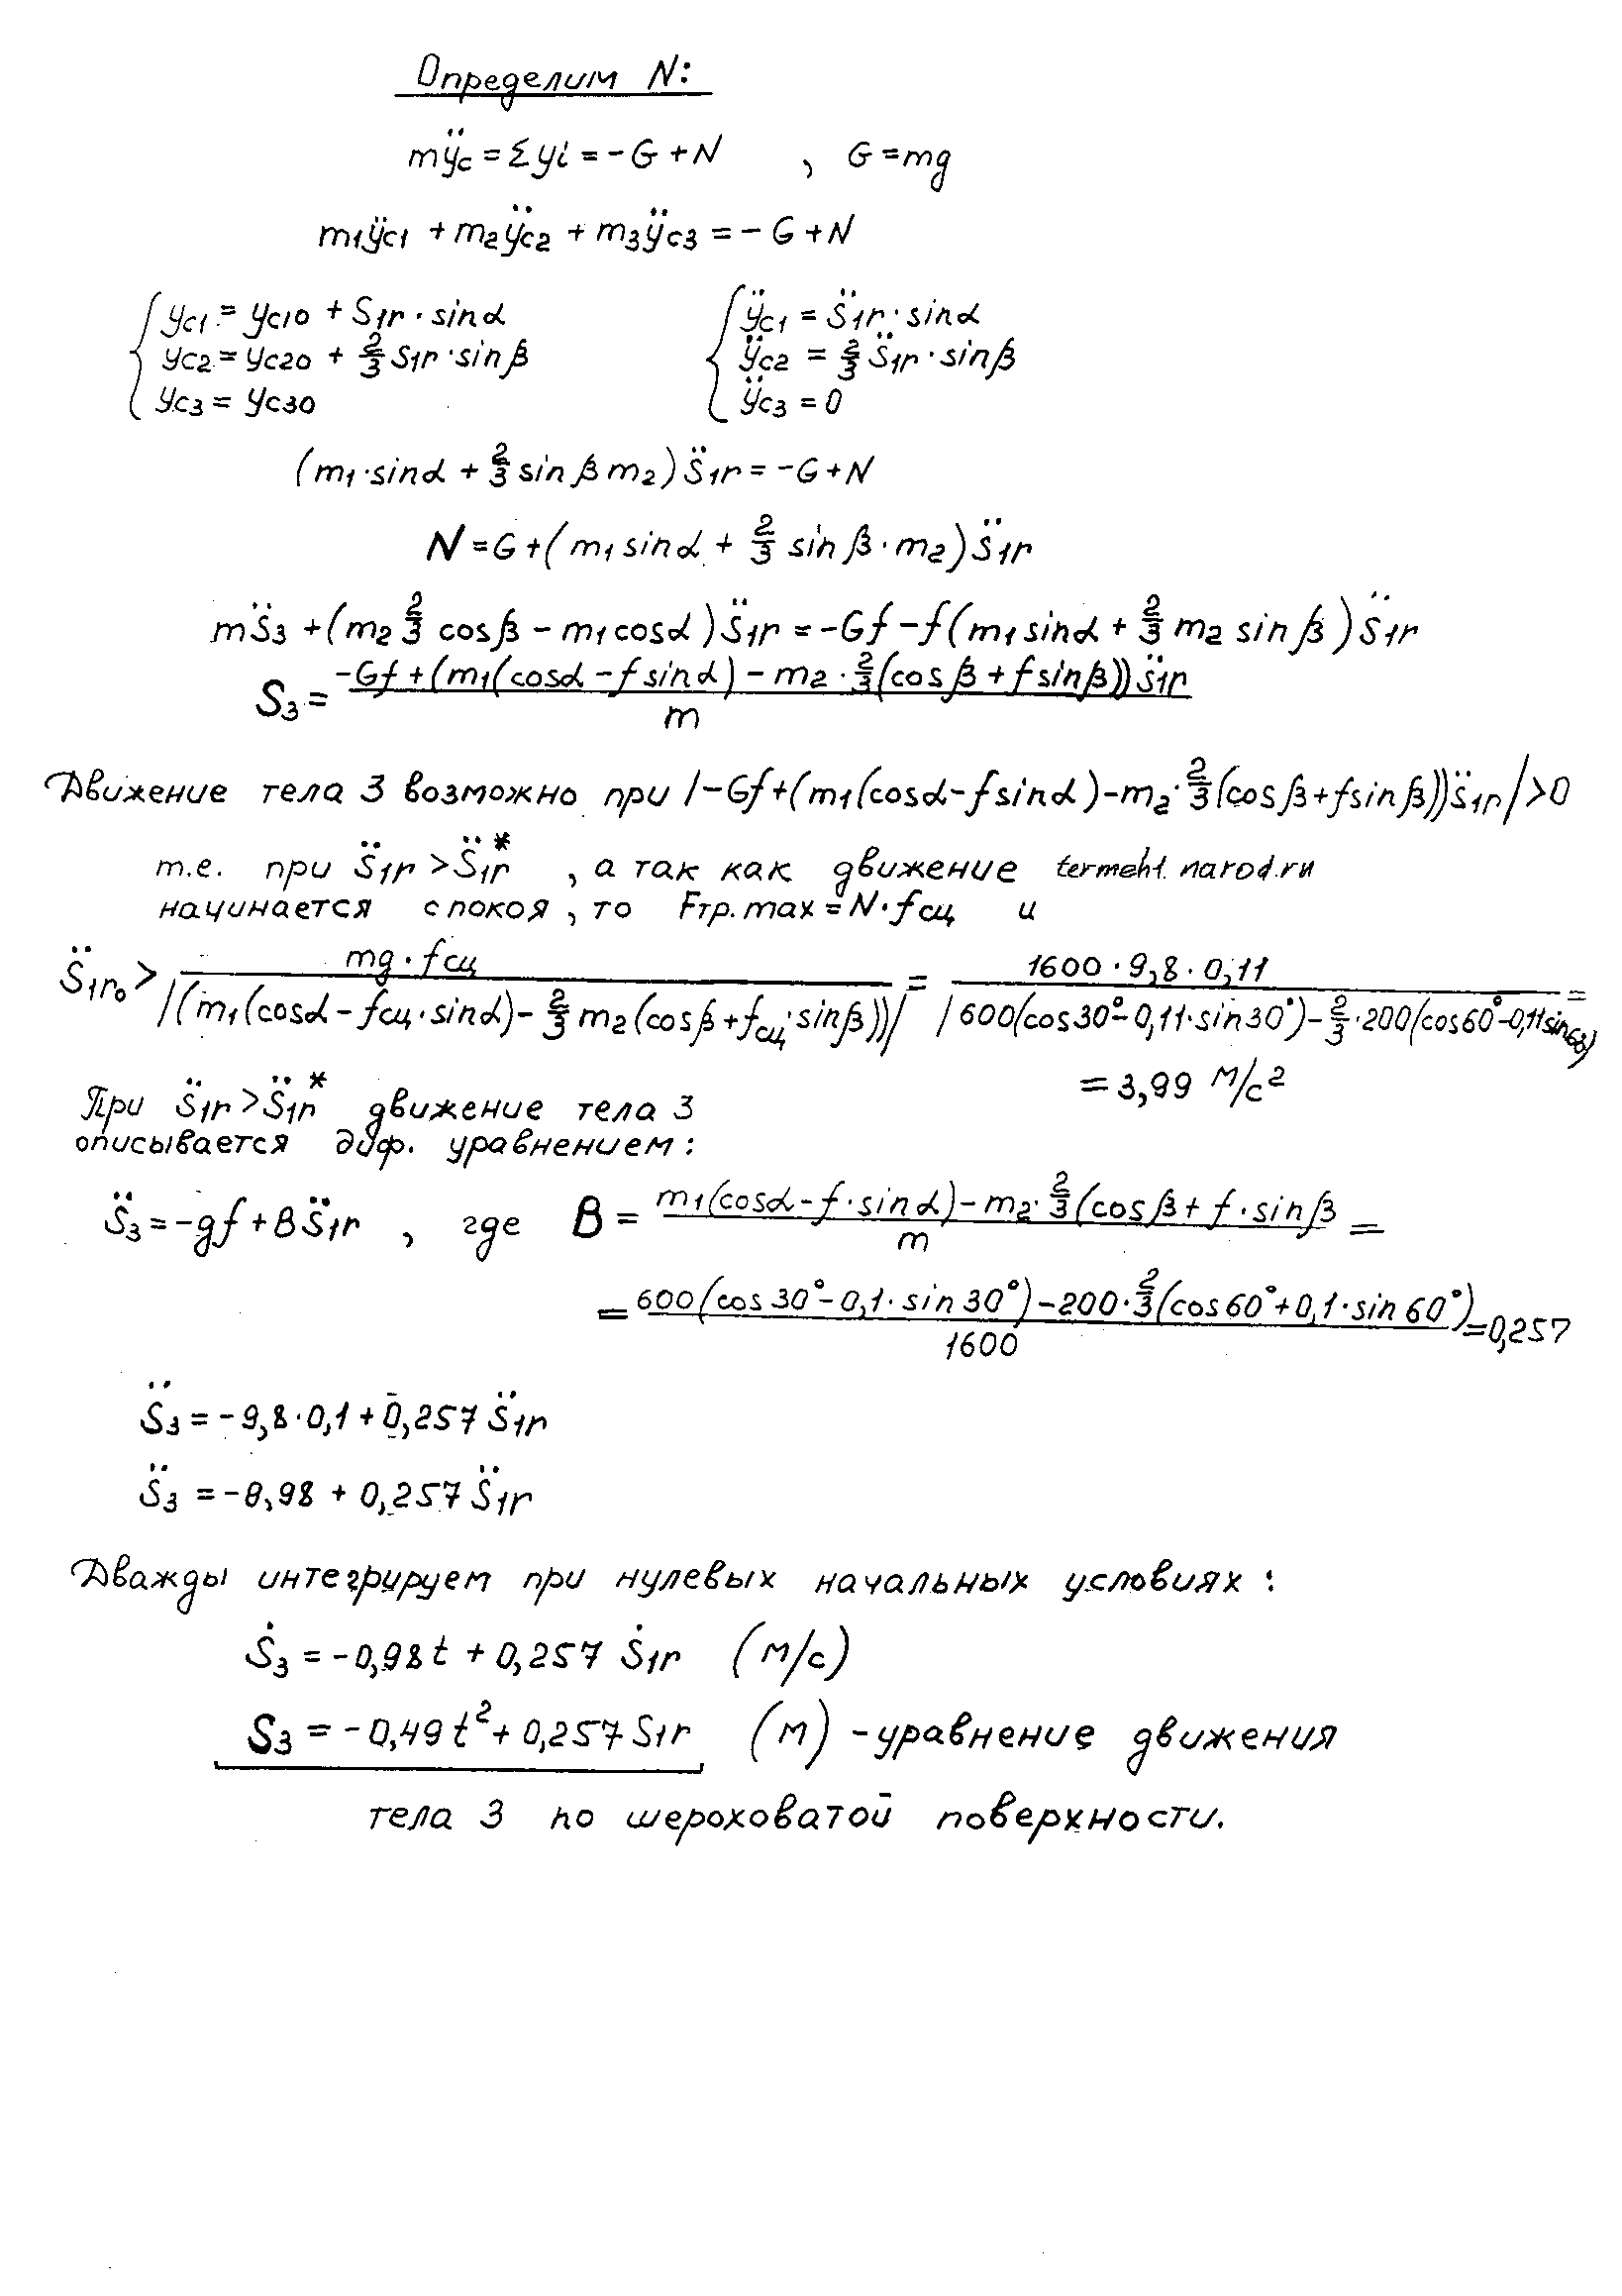 Определим N:
mÿc = Σyi = -G + N , G = mg
m1ÿc1 + m2ÿc2 + m3ÿc3 = -G + N
{ yc1 = yc10 + S1r · sinα { ÿc1 = S̈1r · sinα
yc2 = yc20 + 2/3 S1r · sinβ ÿc2 = 2/3 S̈1r · sinβ
yc3 = yc30 ÿc3 = 0
(m1 · sinα + 2/3 sinβ m2) S̈1r = -G + N
N = G + (m1 sinα + 2/3 sinβ · m2) S̈1r
mS̈3 + (m2 2/3 cosβ - m1 cosα) S̈1r = -Gf - f(m1 sinα + 2/3 m2 sinβ) S̈1r
S3 = (-Gf + (m1(cosα - f sinα) - m2 · 2/3(cosβ + f sinβ)) S̈1r) / m
Движение тела 3 возможно при |-Gf + (m1(cosα - f sinα) - m2 · 2/3(cosβ + f sinβ)) S̈1r| > 0
т.е. при S̈1r > S̈1r* , а так как движение termeh1.narod.ru
начинается с покоя, то Fтр.max = N · fсц и
S̈1r₀ > mg · fсц / |(m1(cosα - fсц · sinα) - 2/3 m2(cosβ + fсц · sinβ))| = 1600 · 9,8 · 0,11 / |600(cos30° - 0,11 · sin30°) - 2/3 · 200(cos60° - 0,11 sin60°) =
= 3,99 м/с²
При S̈1r > S̈1r* движение тела 3
описывается диф. уравнением:
S̈3 = -gf + B S̈1r , где B = (m1(cosα - f · sinα) - m2 · 2/3(cosβ + f · sinβ) / m =
= (600(cos30° - 0,1 · sin30°) - 200 · 2/3(cos60° + 0,1 · sin60°)) / 1600 = 0,257
S̈3 = -9,8 · 0,1 + 0,257 S̈1r
S̈3 = -0,98 + 0,257 S̈1r
Дважды интегрируем при нулевых начальных условиях:
Ṡ3 = -0,98t + 0,257 Ṡ1r (м/с)
S3 = -0,49t² + 0,257 S1r (м) - уравнение движения
тела 3 по шероховатой поверхности.